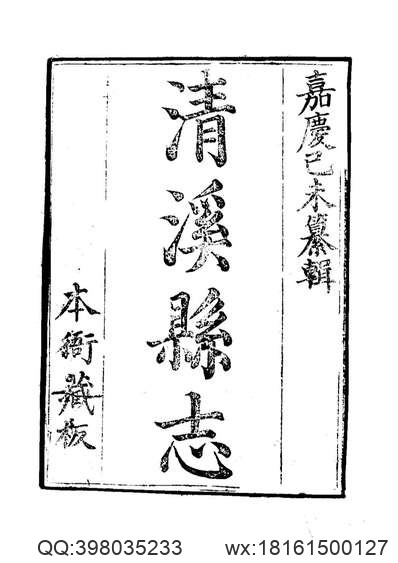 嘉慶己未纂輯
清溪縣志
本衙藏板
QQ:398035233 wx:18161500127